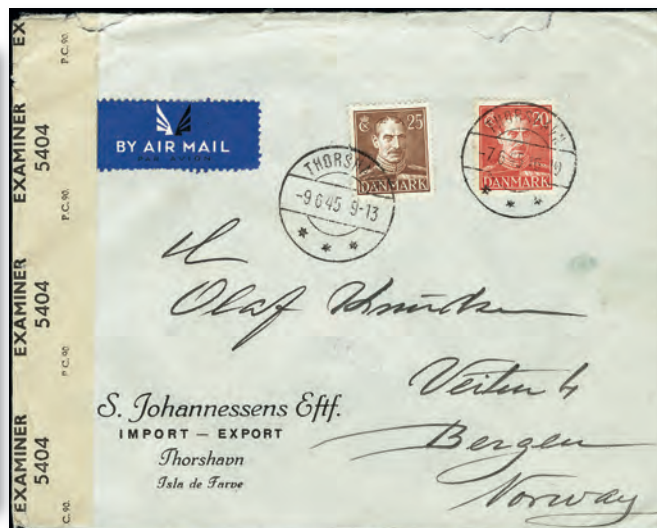 EX
P.C. 90.
EXAMINER
5404
P.C. 90.
EXAMINER
5404
P.C. 90.
EXAMINER
5404
P.C. 90.
BY AIR MAIL
PAR AVION
25
DANMARK
20
DANMARK
THORSH
-9 6 45 9-13
Olaf
Veiten 4
Bergen
Norway
S. Johannessens Eftf.
IMPORT — EXPORT
Thorshavn
Isla de Farve